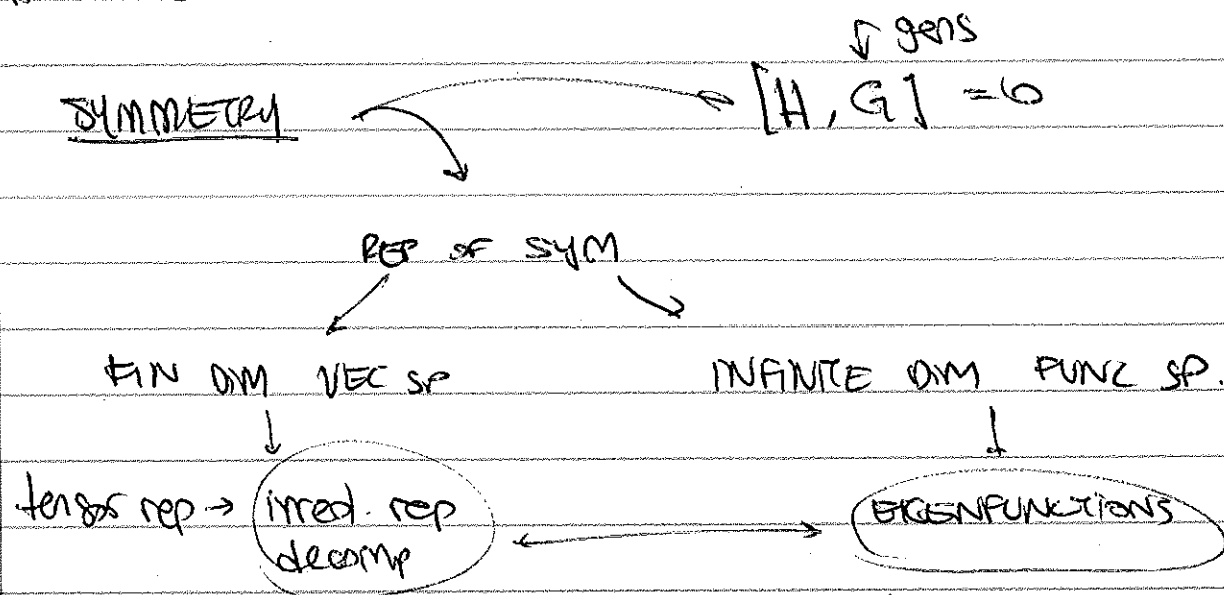 gens
SYMMETRY [H, G] = 0
REP OF SYM
FIN DIM VEC SP INFINITE DIM FUNC SP.
tensor rep → irred. rep EIGENFUNCTIONS
decomp